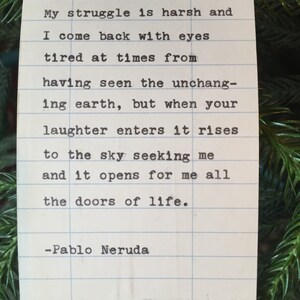 My struggle is harsh and
I come back with eyes
tired at times from
having seen the unchang-
ing earth, but when your
laughter enters it rises
to the sky seeking me
and it opens for me all
the doors of life.
-Pablo Neruda